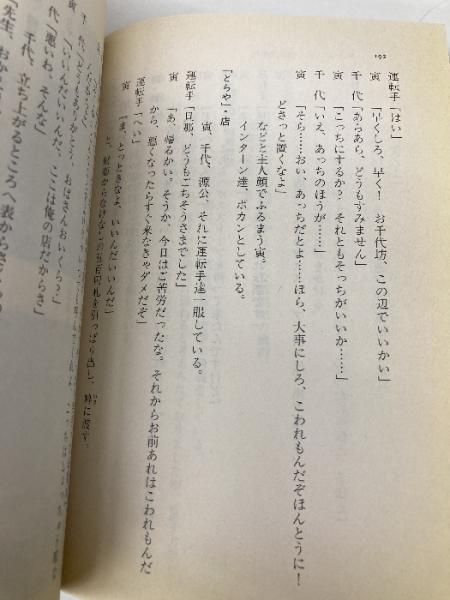 192
運転手「はい」
寅「早くしろ、早く! お千代坊、この辺でいいかい」
千代「あらあら、どうもすみません」
寅「こっちにするか? それともそっちがいいか……」
千代「いえ、あっちのほうが……」
寅「そら……おい、あっちだとよ……ほら、大事にしろ、こわれもんだぞほんとうに!
どさっと置くなよ」
などと主人顔でふるまう寅。
インターン達、ポカンとしている。
「とらや」・店
寅、千代、源公、それに運転手達一服している。
運転手「旦那、どうもごちそうさまでした」
寅「あ、帰るかい。そうか、今日はご苦労だったな。それからお前あれはこわれもんだ
から、悪くなったらすぐ来なきゃダメだぞ」
運転手「へい」
寅「ま、とっときなよ、いいんだいいんだ」
と、財布からなけなしの五百円札を引っぱり出し、粋に渡す。
おばさんおいくら?」
「いいんだいいんだ、ここは俺の店だからさ」
代「悪いわ、そんな」
千代、立ち上がるところへ表から
「先生、おか